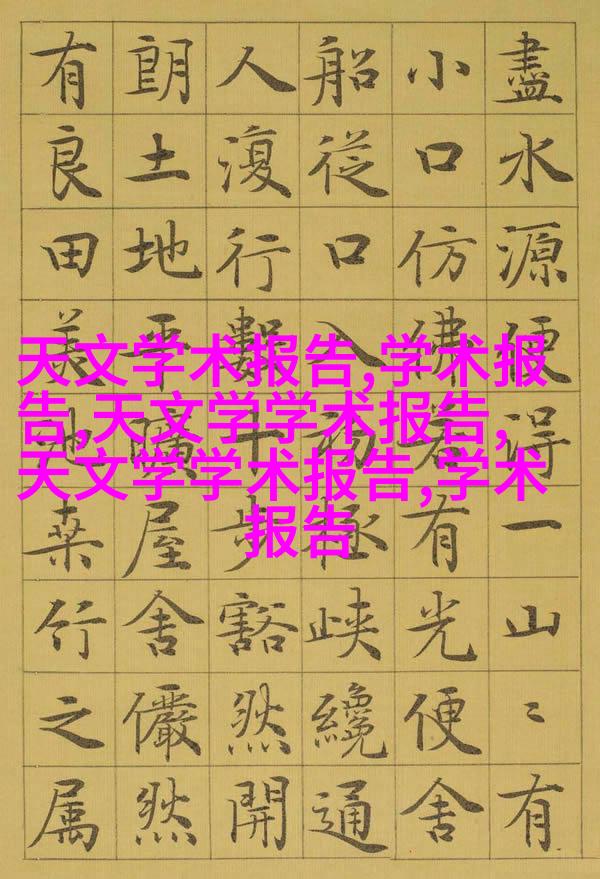 盡水源便得一山〻有
小口仿彿若有光便舍
船從口入初極峽纔通
人復行數十步豁然開
朗土地平曠屋舍儼然
有良田美池桑竹之属
天文学术报告,学术报
告,天文学学术报告,
天文学学术报告,学术
报告